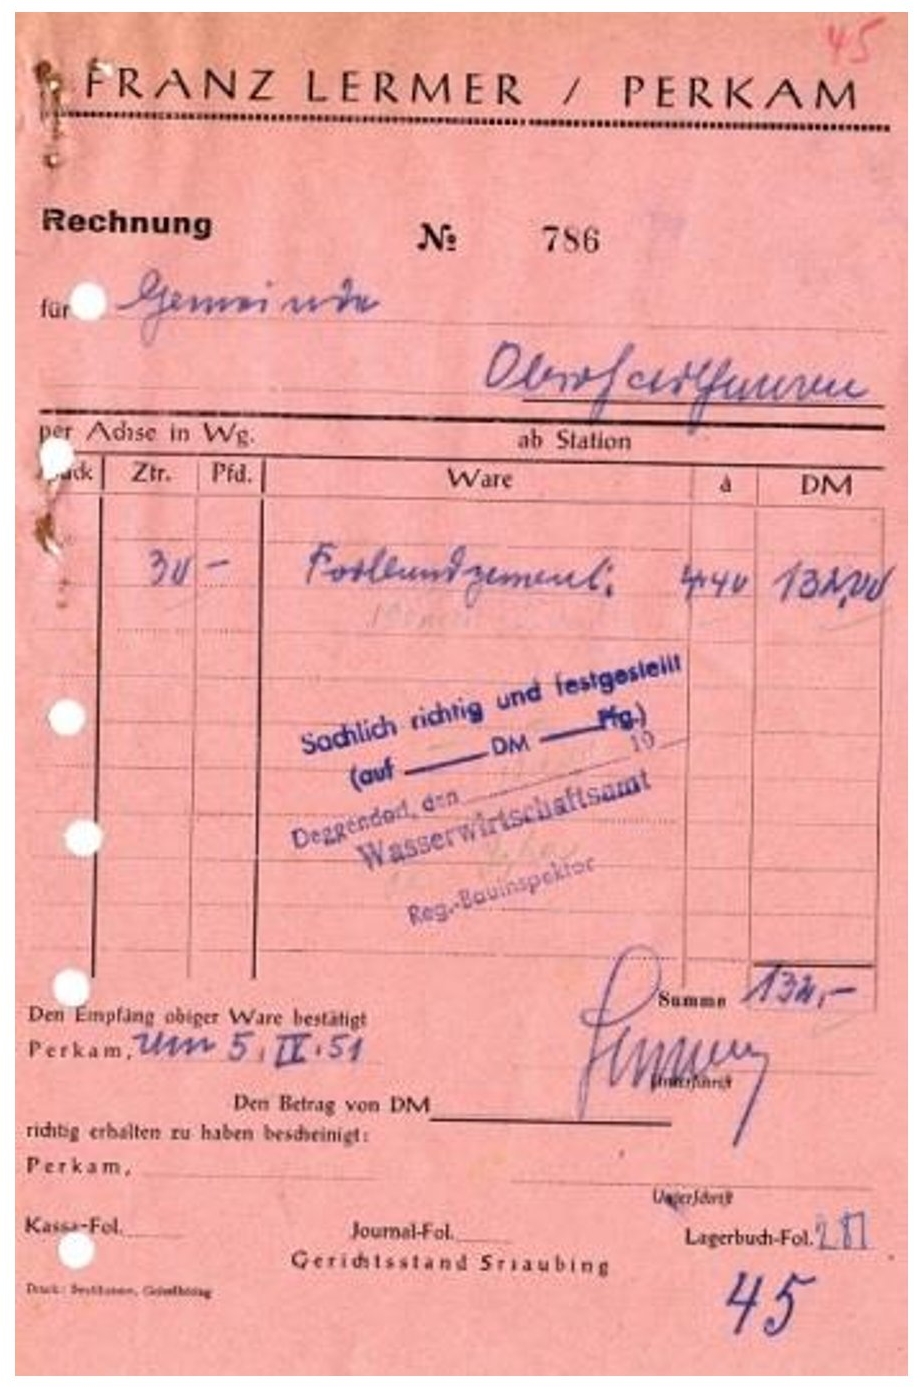 45
FRANZ LERMER / PERKAM
Rechnung № 786
für Gemeinde
per Achse in Wg. ab Station
Ztr. Pfd. Ware à DM
30 – Portlandzement. 4,40 132,00
Sachlich richtig und festgestellt
(auf DM Pfg.)
Deggendorf, den 19
Wasserwirtschaftsamt
Reg.-Bauinspektor
Summe 132,–
Den Empfang obiger Ware bestätigt
Perkam, am 5. IV. 51
Unterschrift
Den Betrag von DM
richtig erhalten zu haben bescheinigt:
Perkam,
Unterschrift
Kassa-Fol. Journal-Fol. Lagerbuch-Fol. 281
Gerichtsstand Straubing
45